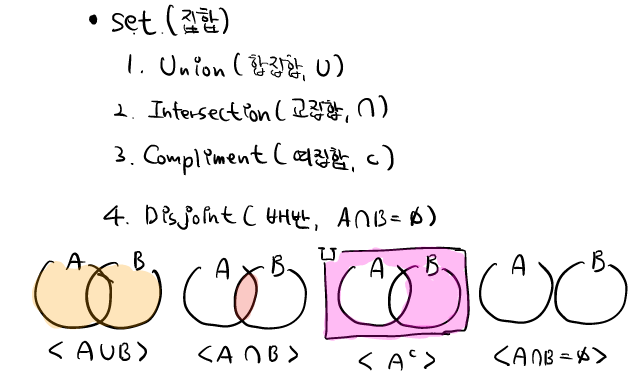 • set (집합)
1. Union (합집합, ∪)
2. Intersection (교집합, ∩)
3. Compliment (여집합, c)
4. Disjoint (배반, A∩B = ∅)
A B A B U A B A B
< A∪B > < A ∩ B > < Aᶜ > < A∩B = ∅ >